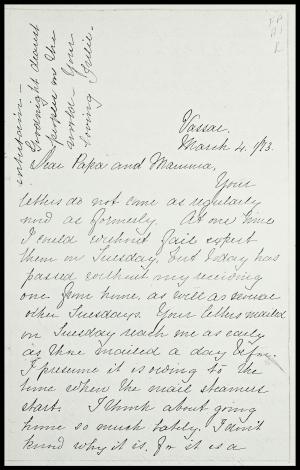 Vassar.
March 4. /73.
Dear Papa and Mamma,
Your
letters do not come as regularly
now as formerly. At one time
I could without fail expect
them on Tuesday, but today has
passed without my receiving
one from home, as well as several
other Tuesdays. Your letters mailed
on Tuesday reach me as early
as those mailed a day before.
I presume it is owing to the
time when the mail steamers
start. I think about going
home so much lately. I don't
know why it is, for it is a
entertain—
Goodnight dearest
people in the
world— Your
loving